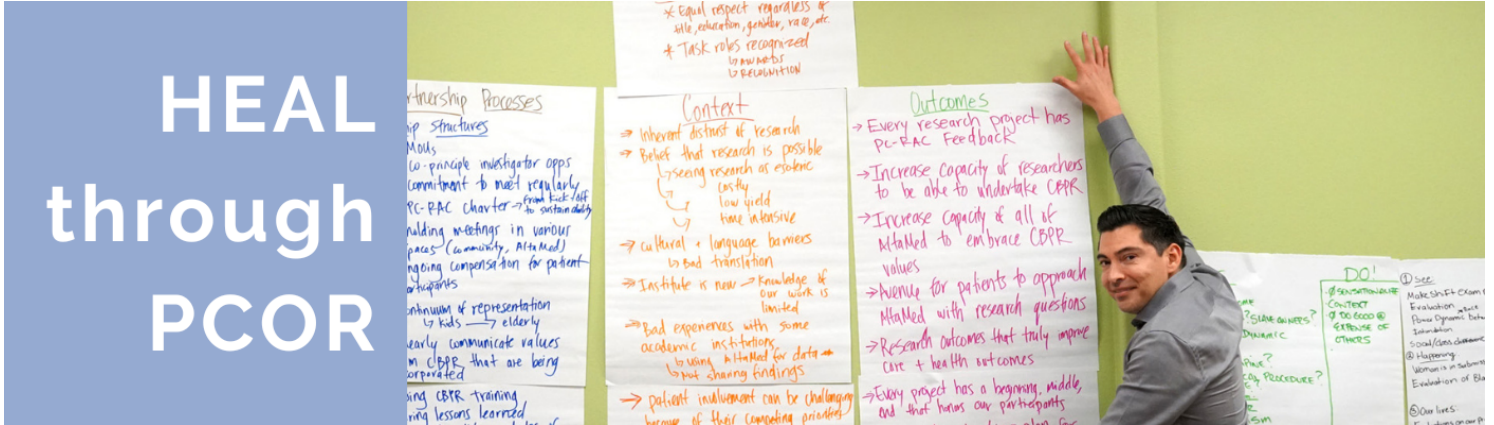 HEAL
through
PCOR
* Equal respect regardless of
title, education, gender, race, etc.
* Task roles recognized
↳ AWARDS
↳ RECOGNITION
rtnership Processes
ip structures
MOUs
co-principle investigator opps
commitment to meet regularly
PC-RAC charter → from kick off
to sustainability
holding meetings in various
spaces (community, AltaMed)
ngoing compensation for patient
articipants
ontinuum of representation
↳ kids → elderly
early communicate values
m CBPR that are being
orporated
CBPR training
ring lessons learned
Context
→ Inherent distrust of research
→ Belief that research is possible
↳ seeing research as esoteric
↳ costly
↳ low yield
↳ time intensive
→ cultural + language barriers
↳ Bad translation
→ Institute is new → Knowledge of
our work is
limited
→ Bad experiences with some
academic institutions
↳ using AltaMed for data
↳ Not sharing findings
→ patient involvement can be challenging
because of their competing priorities
Outcomes
→ Every research project has
PC-RAC Feedback
→ Increase capacity of researchers
to be able to undertake CBPR
→ Increase capacity of all of
AltaMed to embrace CBPR
values
→ Avenue for patients to approach
AltaMed with research questions
→ Research outcomes that truly improve
care + health outcomes
→ Every project has a beginning, middle,
and that honors our participants
? SLAVE OWNERS?
DYNAMIC
PROCEDURE?
DO!
CONTEXT
Ø DO GOOD @
EXPENSE OF
OTHERS
① See:
Makeshift exam
Evaluation
Power Dynamic
② Happening
Woman is in
Evaluation of
③ Our lives: